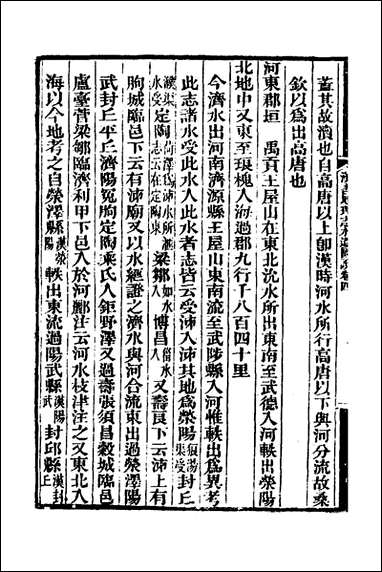 蓋其故瀆也自高唐以上卽漢時河水所行高唐以下與河分流故桑
欽以爲出高唐也
河東郡垣　禹貢王屋山在東北沇水所出東南至武德入河軼出滎陽
北地中又東至琅槐入海過郡九行千八百四十里
今濟水出河南濟源縣王屋山東南流至武陟縣入河惟軼出爲異考
此志諸水受此水入此水者志皆云受沛入沛其地爲滎陽狼湯渠受封丘
濮渠水受定陶志云在定陶東梁鄒如水所入博昌入又壽良下云沛上有
朐城臨邑下云有沛廟又以水經證之濟水與河合流東出過滎陽
武封丘平丘濟陽冤朐定陶乘氏入鉅野澤又過壽張須昌穀城臨邑
盧臺菅梁鄒臨濟利甲下邑入於河酈注云河水枝津注之又東北入
海以今地考之自滎澤縣漢滎陽軼出東流過陽武縣漢陽武封邱縣漢封丘